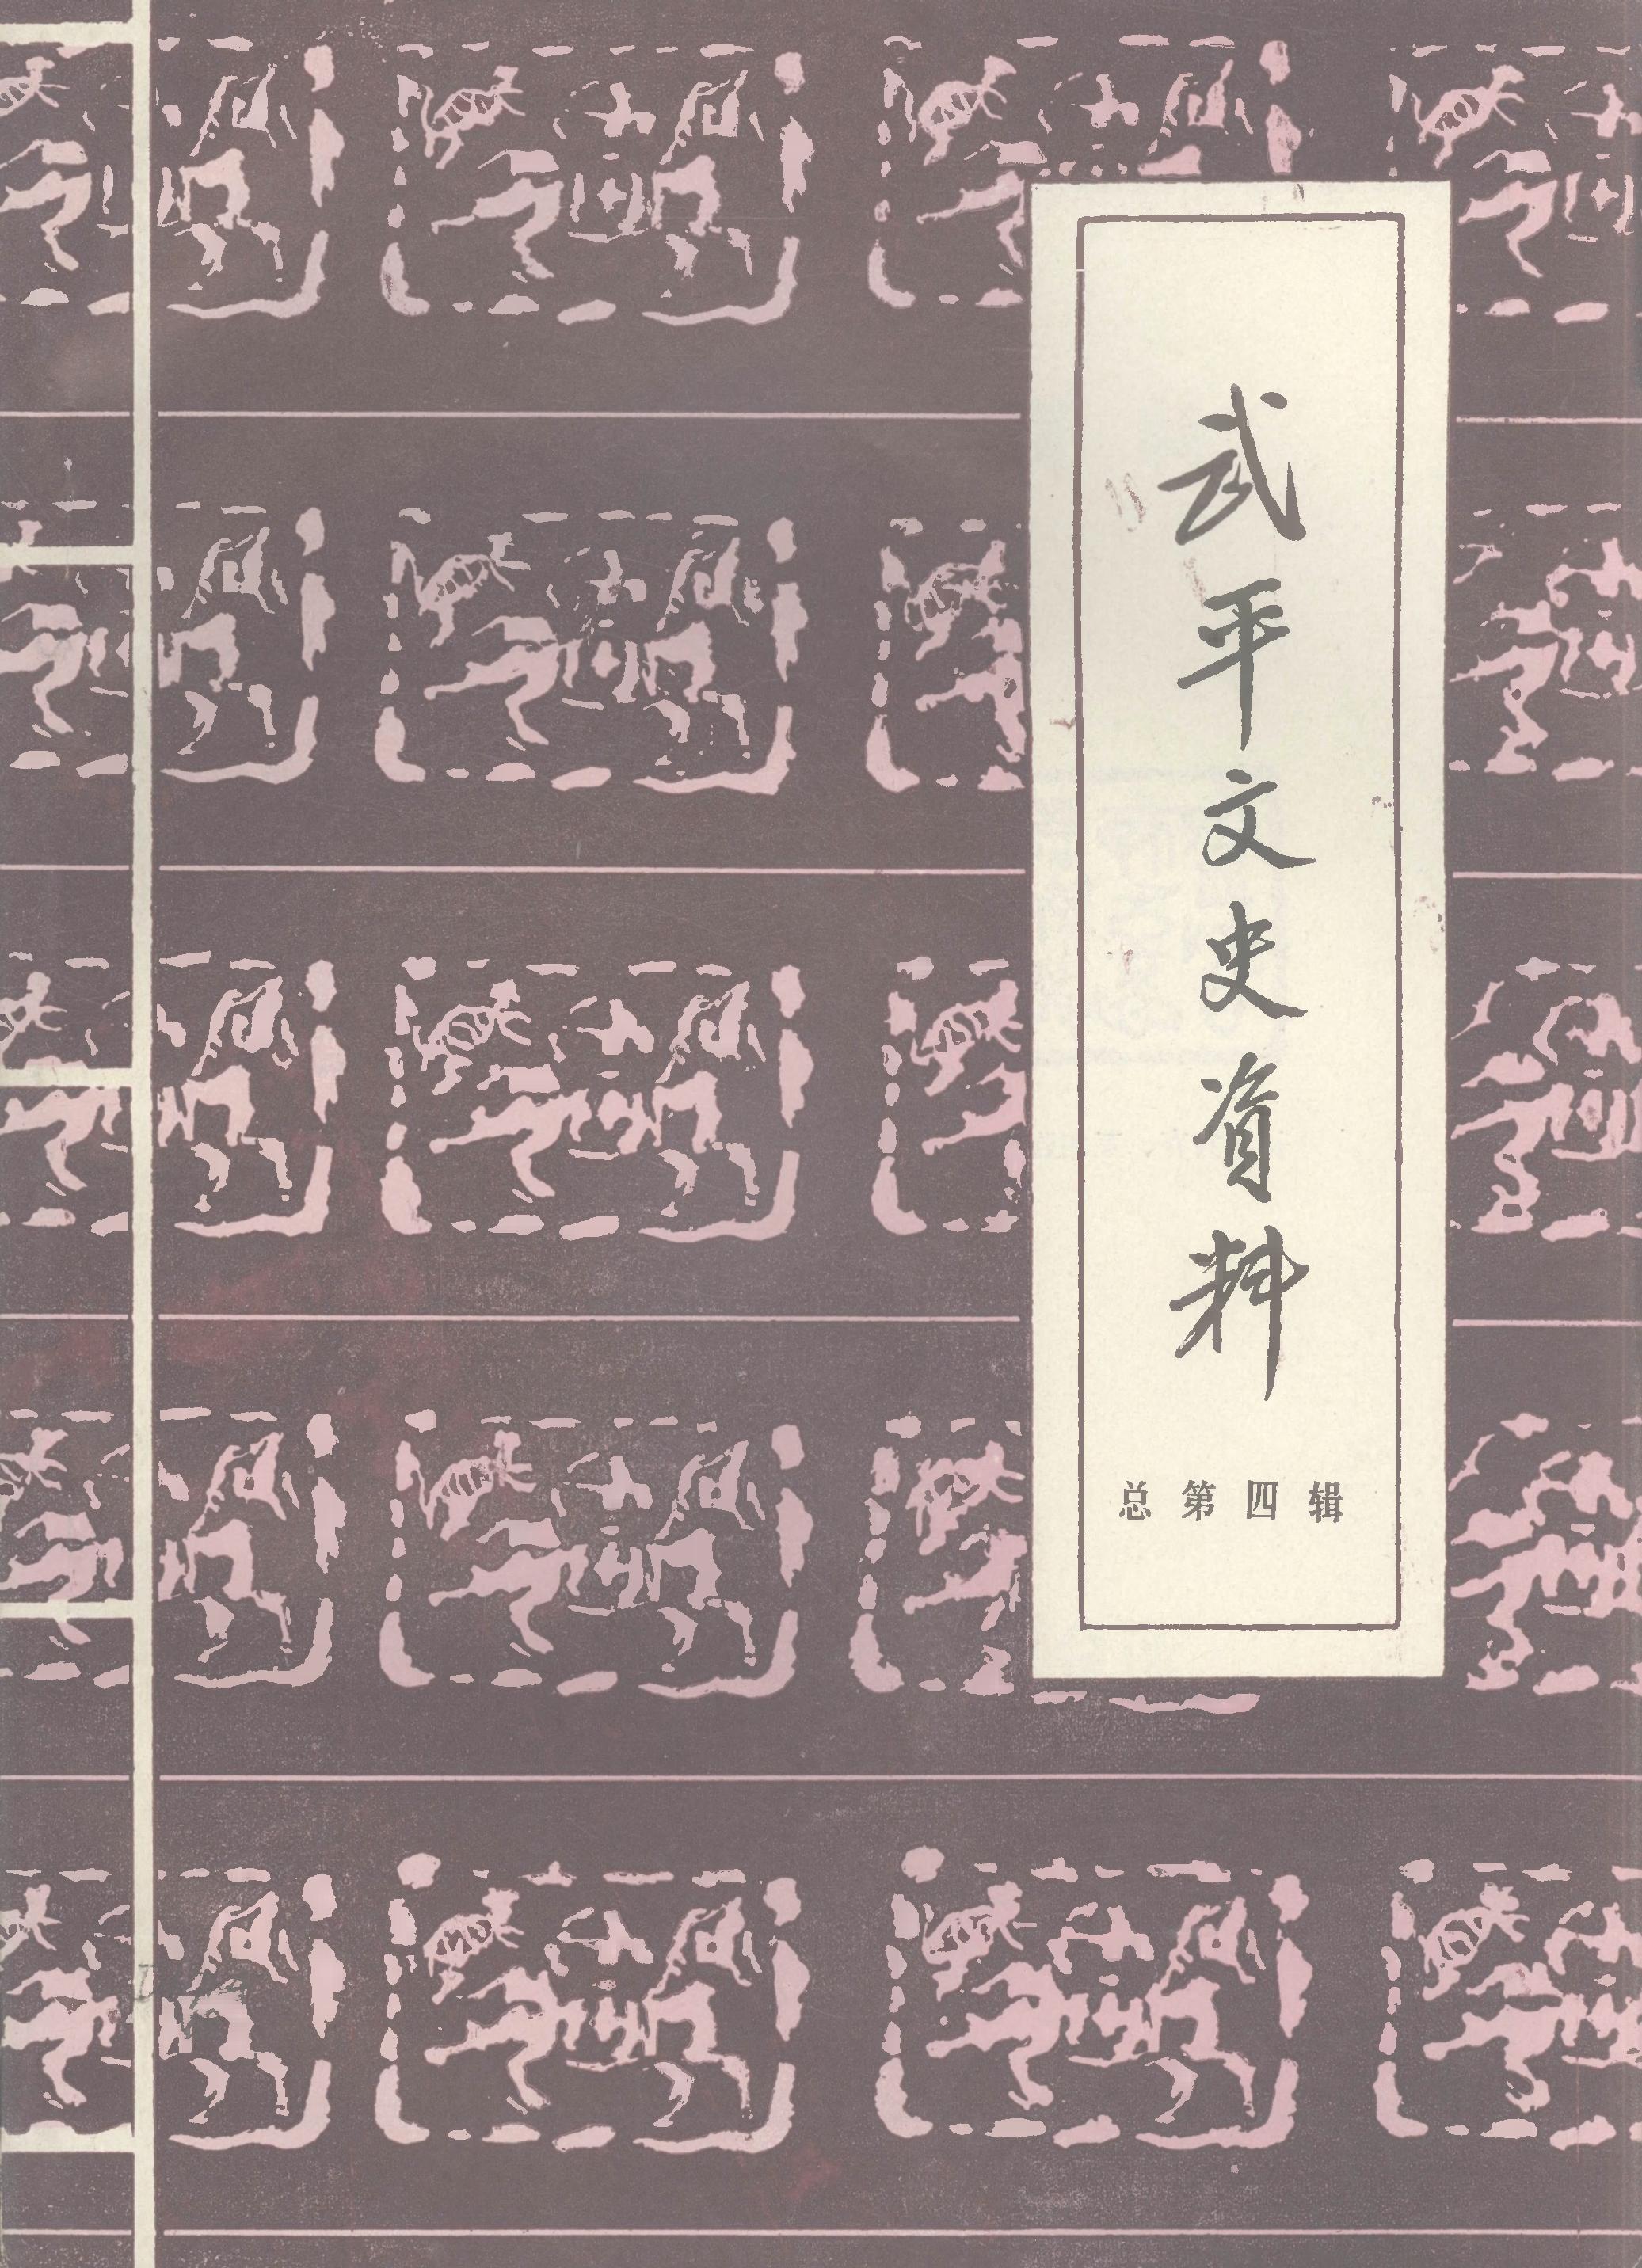 武平文史資料
总第四辑